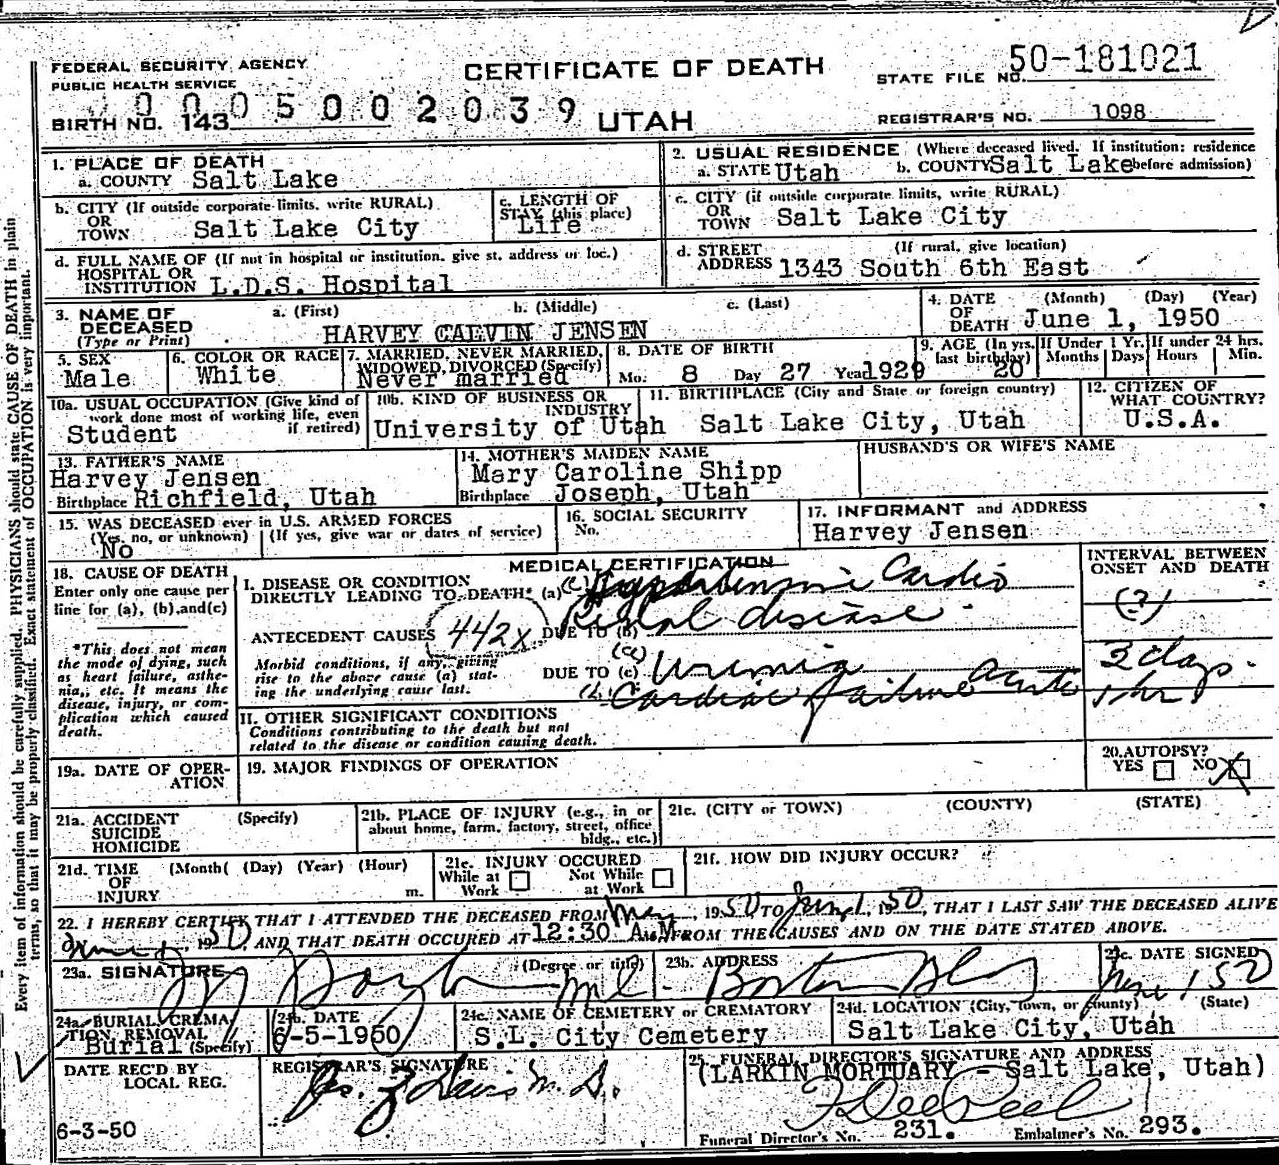 FEDERAL SECURITY AGENCY
PUBLIC HEALTH SERVICE
CERTIFICATE OF DEATH
STATE FILE NO. 50-181021
0005002039
BIRTH NO. 143
UTAH
REGISTRAR'S NO. 1098
1. PLACE OF DEATH
a. COUNTY Salt Lake
2. USUAL RESIDENCE (Where deceased lived. If institution: residence before admission)
a. STATE Utah b. COUNTY Salt Lake
b. CITY (If outside corporate limits, write RURAL)
OR
TOWN Salt Lake City
c. LENGTH OF
STAY (this place)
Life
c. CITY (if outside corporate limits, write RURAL)
OR
TOWN Salt Lake City
d. FULL NAME OF (If not in hospital or institution, give st. address or loc.)
HOSPITAL OR
INSTITUTION L.D.S. Hospital
d. STREET (If rural, give location)
ADDRESS 1343 South 6th East
3. NAME OF
DECEASED
(Type or Print)
a. (First) b. (Middle) c. (Last)
HARVEY CALVIN JENSEN
4. DATE (Month) (Day) (Year)
OF
DEATH June 1, 1950
5. SEX
Male
6. COLOR OR RACE
White
7. MARRIED, NEVER MARRIED,
WIDOWED, DIVORCED (Specify)
Never married
8. DATE OF BIRTH
Mo. 8 Day 27 Year 1929
9. AGE (In yrs. last birthday) 20
If Under 1 Yr. Months Days
If under 24 hrs. Hours Min.
10a. USUAL OCCUPATION (Give kind of
work done most of working life, even
if retired)
Student
10b. KIND OF BUSINESS OR
INDUSTRY
University of Utah
11. BIRTHPLACE (City and State or foreign country)
Salt Lake City, Utah
12. CITIZEN OF
WHAT COUNTRY?
U.S.A.
13. FATHER'S NAME
Harvey Jensen
Birthplace Richfield, Utah
14. MOTHER'S MAIDEN NAME
Mary Caroline Shipp
Birthplace Joseph, Utah
HUSBAND'S OR WIFE'S NAME
15. WAS DECEASED ever in U.S. ARMED FORCES
(Yes, no, or unknown) (If yes, give war or dates of service)
No
16. SOCIAL SECURITY
No.
17. INFORMANT and ADDRESS
Harvey Jensen
18. CAUSE OF DEATH
Enter only one cause per
line for (a), (b) and (c)
*This does not mean
the mode of dying, such
as heart failure, asthe-
nia, etc. It means the
disease, injury, or com-
plication which caused
death.
MEDICAL CERTIFICATION
I. DISEASE OR CONDITION
DIRECTLY LEADING TO DEATH* (a) (c) Hypertensive Cardio
Renal disease.
ANTECEDENT CAUSES 442x DUE TO (b)
Morbid conditions, if any, giving
rise to the above cause (a) stat-
ing the underlying cause last.
(a)
DUE TO (c) Uremia
(b) Cardiac failure acute
INTERVAL BETWEEN
ONSET AND DEATH
(?)
3 days.
1 hr
II. OTHER SIGNIFICANT CONDITIONS
Conditions contributing to the death but not
related to the disease or condition causing death.
19a. DATE OF OPER-
ATION
19. MAJOR FINDINGS OF OPERATION
20. AUTOPSY?
YES NO X
21a. ACCIDENT (Specify)
SUICIDE
HOMICIDE
21b. PLACE OF INJURY (e.g., in or
about home, farm, factory, street, office
bldg., etc.)
21c. (CITY or TOWN) (COUNTY) (STATE)
21d. TIME (Month( (Day) (Year) (Hour)
OF
INJURY m.
21e. INJURY OCCURED
While at Work Not While at Work
21f. HOW DID INJURY OCCUR?
22. I HEREBY CERTIFY THAT I ATTENDED THE DECEASED FROM May, 1950 TO June 1, 1950, THAT I LAST SAW THE DECEASED ALIVE
June 1, 1950 AND THAT DEATH OCCURED AT 12:30 A.M. FROM THE CAUSES AND ON THE DATE STATED ABOVE.
23a. SIGNATURE (Degree or title)
23b. ADDRESS
Boston Bldg
23c. DATE SIGNED
June 1 50
24a. BURIAL, CREMA-
TION, REMOVAL
Burial (Specify)
24b. DATE
6-5-1950
24c. NAME OF CEMETERY or CREMATORY
S.L. City Cemetery
24d. LOCATION (City, Town, or County) (State)
Salt Lake City, Utah
DATE REC'D BY
LOCAL REG.
6-3-50
REGISTRAR'S SIGNATURE
25. FUNERAL DIRECTOR'S SIGNATURE AND ADDRESS
(LARKIN MORTUARY - Salt Lake, Utah)
Funeral Director's No. 231. Embalmer's No. 293.
Every item of information should be carefully supplied. PHYSICIANS should state CAUSE OF DEATH in plain
terms, so that it may be properly classified. Exact statement of OCCUPATION is very important.